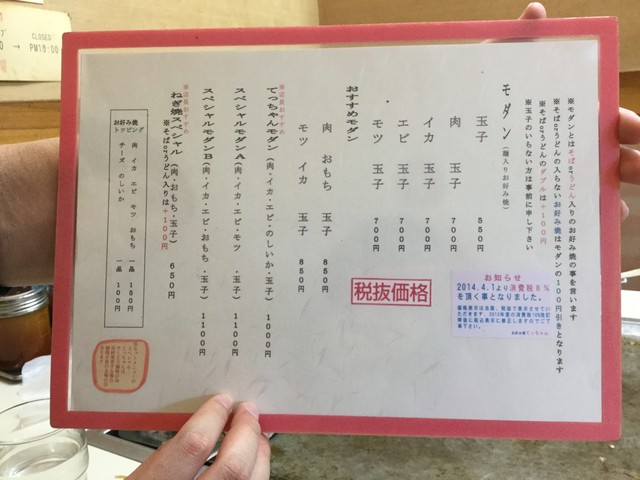 ※モダンとはそばorうどん入りのお好み焼の事を言います
※そばorうどんの入らないお好み焼はモダンの100円引きとなります
※そばorうどんのダブルは+100円
※玉子のいらない方は事前に申し下さい
モダン(麺入りお好み焼)
玉子 550円
肉 玉子 700円
イカ 玉子 700円
エビ 玉子 700円
モツ 玉子 700円
おすすめモダン
肉 おもち 玉子 850円
モツ イカ 玉子 850円
※店長おすすめ
てっちゃんモダン(肉・イカ・エビ・のしいか・玉子) 1000円
スペシャルモダンA(肉・イカ・エビ・モツ・玉子) 1100円
スペシャルモダンB(肉・イカ・エビ・おもち・玉子) 1100円
※店長おすすめ
ねぎ焼スペシャル(肉・おもち・玉子) 650円
※そばorうどん入りは+100円
お好み焼
トッピング
肉 イカ エビ モツ おもち 一品 150円
チーズ のしいか 一品 100円
税抜価格
お知らせ
2014.4.1より消費税8%
を頂く事となりました。
CLOSED
→ PM10:00